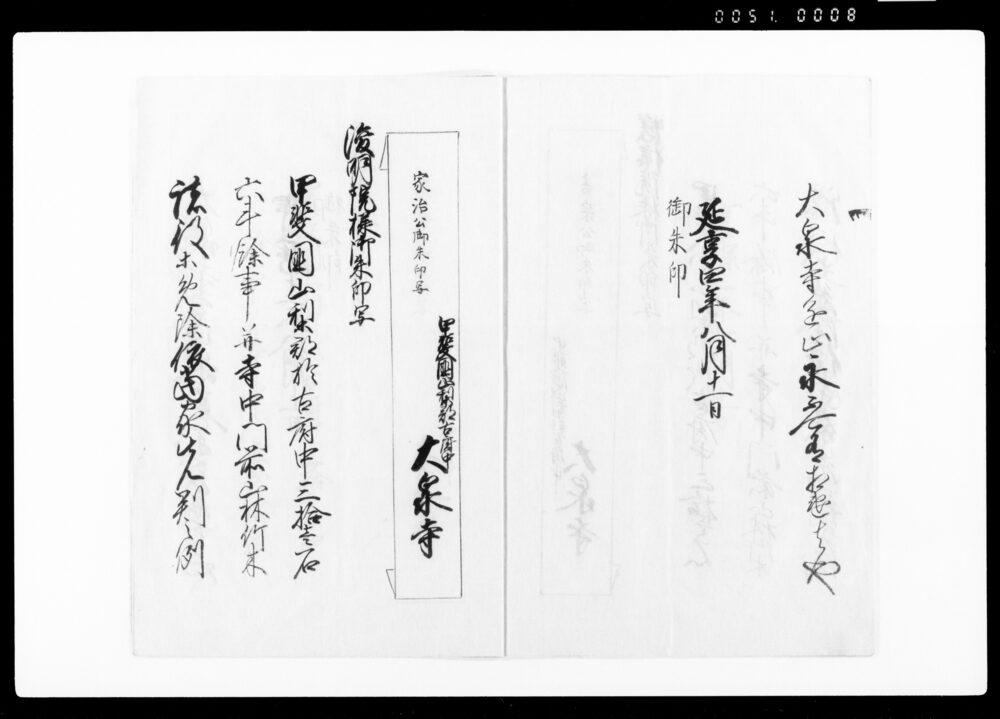 0051. 0008
大泉寺全止永不可有相違者也
延享四年八月十一日
御朱印
甲斐国山梨郡古府中
大泉寺
家治公御朱印写
浚明院様御朱印写
甲斐国山梨郡於古府中三拾壱石
六斗餘事并寺中門前山林竹木
諸役等免除依当家先判之例